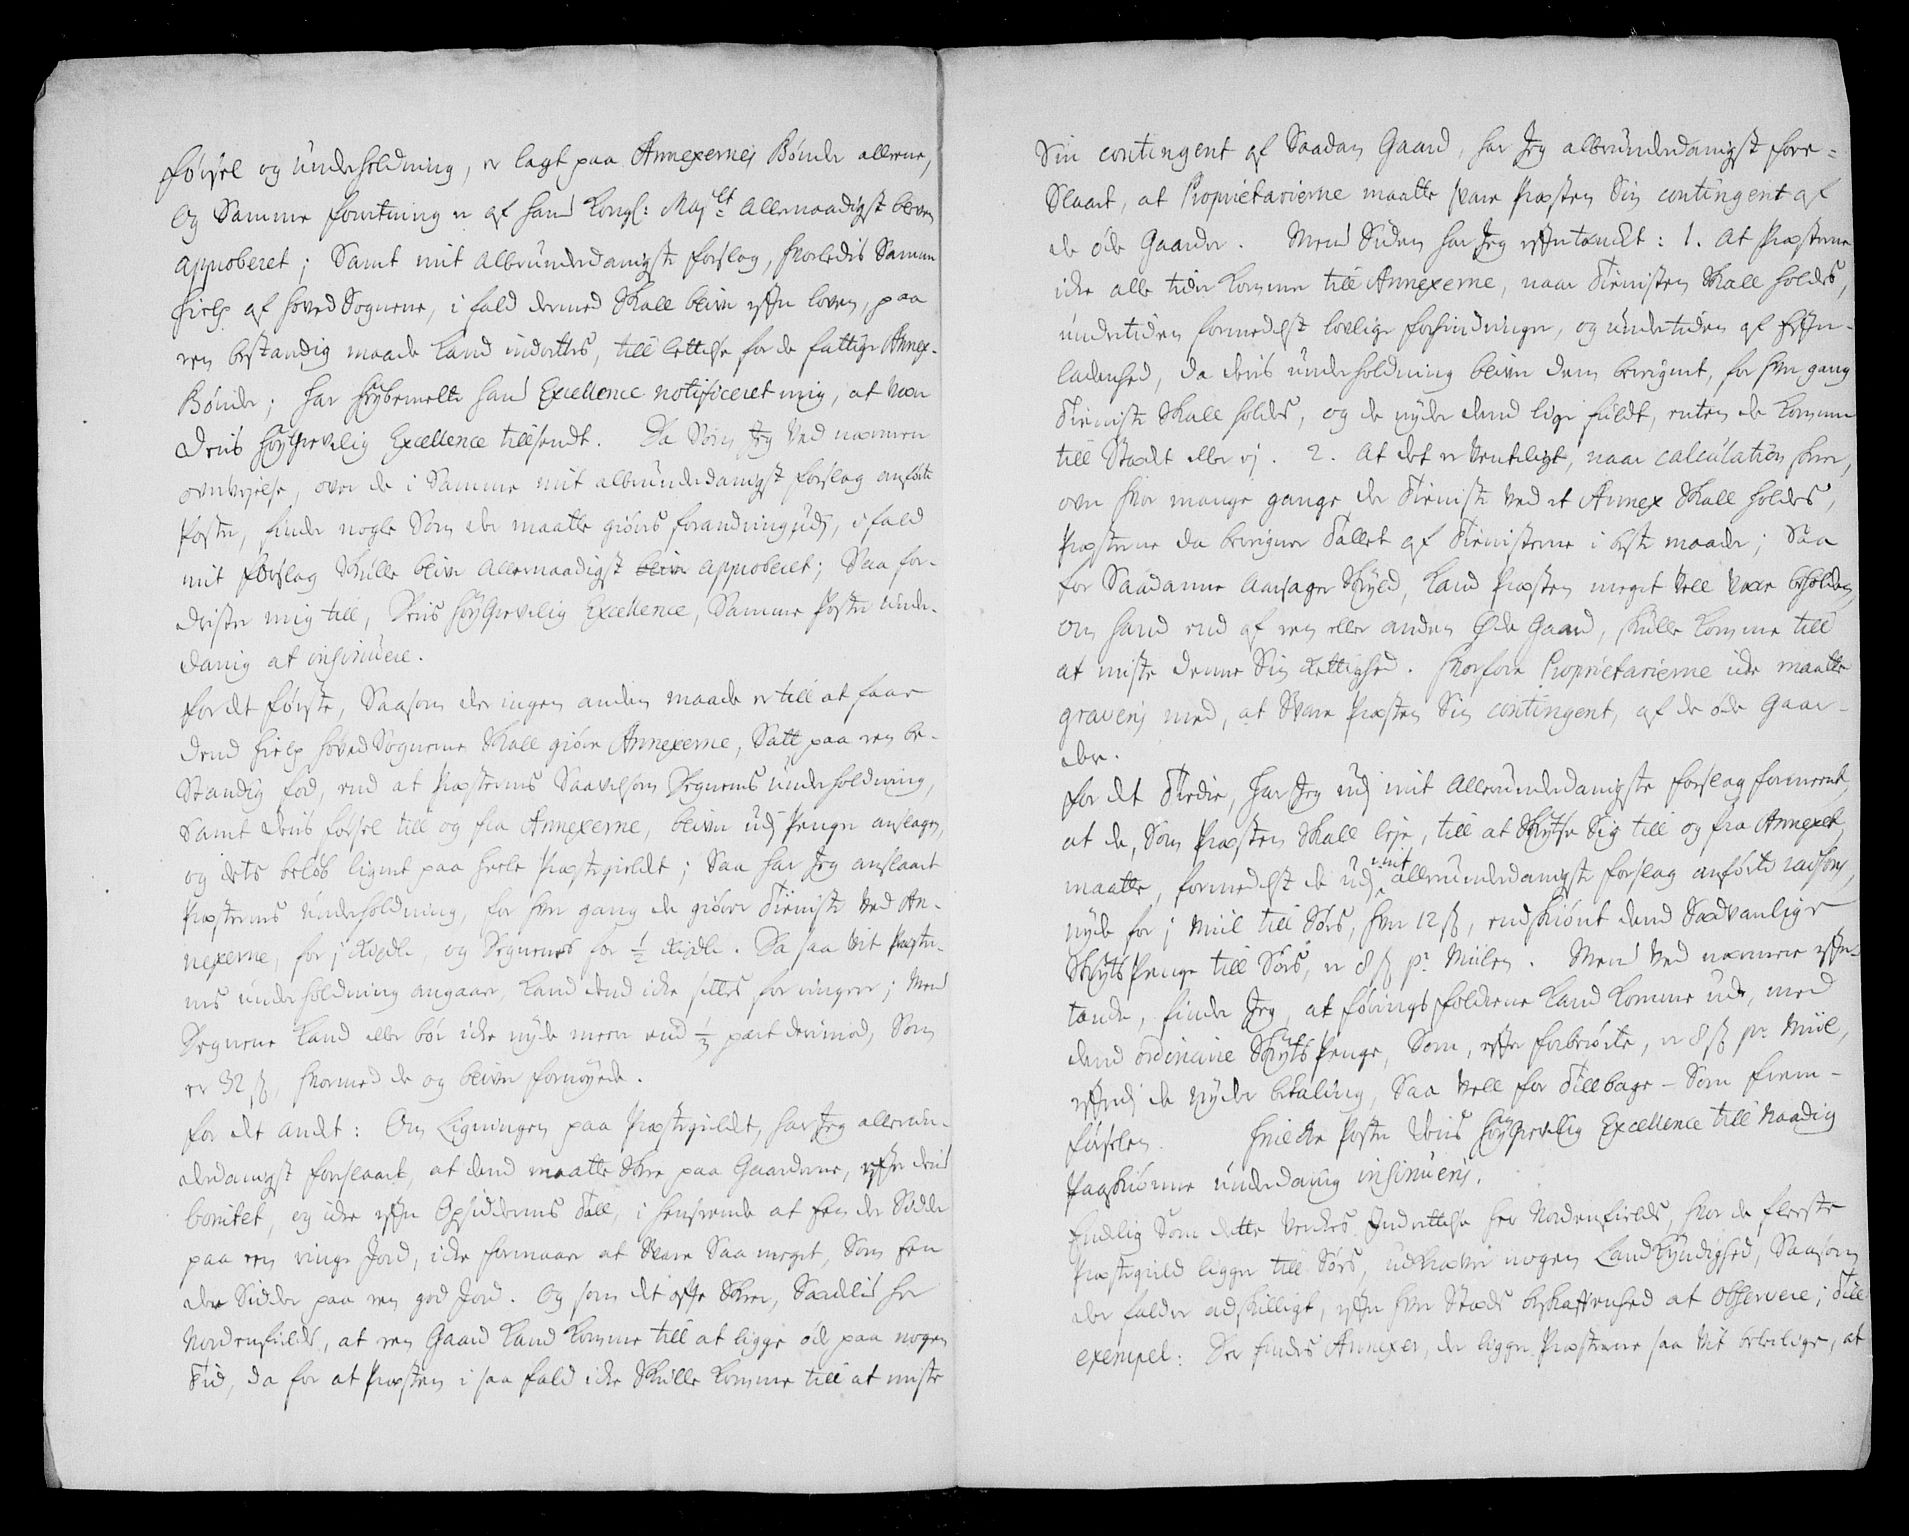 førsel og underholdning, er lagt paa Annexernes Bønder allene,
og Samme forretning er af hans Kongl: Maj:tt allernaadigst bleven
approberet; Samt mit allerunderdanigste forslag, hvorledis Samme
hielp af hovedSognerne, i fald dermed skall blive efter loven, paa
een bestandig maade kand indrettes, till lettelse for de fattige Annex-
Bønder; har høybemelte hans Excellence notificeret mig, at være
Deris HøyGrevelig Excellence tillsendt. Da Som Jeg ved nærmere
overvejelse, over de i Samme mit allerunderdanigst forslag anførte
Poster, finder nogle Som der maatte giøris forandring udj, i fald
mit forslag skulle blive allernaadigst blive approberet; Saa for-
drister mig till, Deris HøyGrevelig Excellence, Samme Poster under-
danig at insinuere.
For det første, Saasom der ingen anden maade er till at faae
dend hielp hovedSognerne skall giøre Annexerne, Satt paa een be-
standig fod, end at Præsternes Saavelsom Degnernes underholdning,
Samt deris førsel till og fra Annexerne, bliver udj Penge anslagen,
og dets beløb lignet paa heele Præstegieldet; Saa har Jeg anslaaet
Præsternes underholdning, for hver gang de giører Tieniste ved An-
nexerne, for j Rixdlr, og Degnernes for ½ Rixdlr. Da saa vit Præster-
nes underholdning angaaer, kand dend icke settes for ringere; Mend
Degnerne kand eller bør icke nyde meere end ⅓ part derimod, Som
er 32 ß, hvormed de og bliver fornøyede.
For det andet: Om Ligningen paa Præstegieldet, har Jeg allerun-
derdanigst forslaaet, at dend maatte skee paa Gaarderne, efter deris
bonitet, og icke efter Opsiddernes Tall, i henseende at hen der Sidder
paa een ringe Jord, icke formaaer at Svare Saa meget, Som hen
der Sidder paa een god Jord. Og som det ofte skeer, Særdelis her
Nordenfields, at een Gaard kand komme till at ligge øde paa nogen
Tid, da for at Præsten i saa fald icke skulle komme till at miste
Sin contingent af Saadan Gaard, har Jeg allerunderdanigst fore-
Slaaet, at Proprietarierne maatte svare Præsten Sin contingent af
de øde Gaarder. Mend Siden har Jeg eftertænckt: 1. At Præsterne
icke alle tider kommer till Annexerne, naar Tienisten skall holdes,
undertiden formedelst lovlige forhindringer, og undertiden af Efter-
ladenhed, da deris underholdning bliver dem beregnet, for hver gang
Tieniste skall holdes, og de nyder dend lige fuldt, enten de kommer
till Stædet eller ej. 2. At det er venteligt, naar calculation skeer,
over hvor mange gange der Tieniste ved et Annex skall holdes,
Præsterne da beregner Tallet af Tienisterne i beste maade; Saa
for Saadanne Aarsager skyld, kand Præsten meget vell være beholden,
om hand end af een eller anden Øde Gaard, skulle komme till
at miste denne Sin Rettighed. Hvorfore Proprietarierne icke maatte
graveris med, at Svare Præsten Sin contingent, af de øde Gaar-
der.
For det Tredie, har Jeg udj mit allerunderdanigste forslag formeent,
at de, Som Præsten skall leje, till at Skydse Sig till og fra Annexet,
maatte, formedelst de udj mit allerunderdanigste forslag anførte raison,
nyde for j Miil till Søes, hver 12 ß, endskiønt dend Sædvanlige
Skyds Penge till Søes, er 8 ß pr. Miilen. Mend ved nærmere efter-
tancke, finder Jeg, at føringsfolckene kand komme ud, med
dend ordinaire Skyds Penge, Som, efter forberørte, er 8 ß pr Miil,
efterdj de nyder betaling, Saa vell for Tillbage- Som frem-
førselen. Hvilcke Poster Deris HøyGrevelig Excellence till Naadig
Paaskiønne underdanig insinueris.
Endelig Som dette Verckes Indrettelse her Nordenfields, hvor de fleeste
Præstegield ligger till Søes, udkræver nogen Landkyndighed, Saasom
der falder adskilligt, efter hver Stæds beskaffenhed at observere; Till
exempel: Der findes Annexer, der ligger Præsterne saa vit beleilige, at